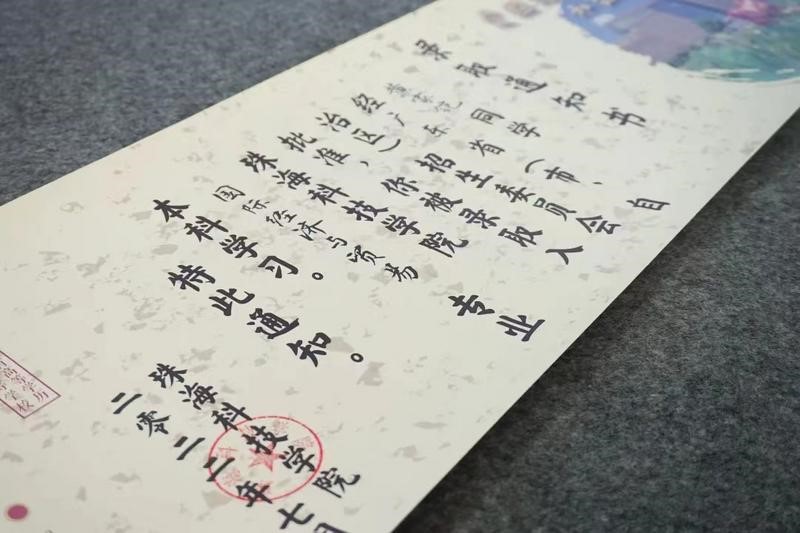 录取通知书
同学
经广东省（市、自
治区）招生委员会
批准，你被录取入
珠海科技学院
国际经济与贸易专业
本科学习。
特此通知。
珠海科技学院
二零二二年七月